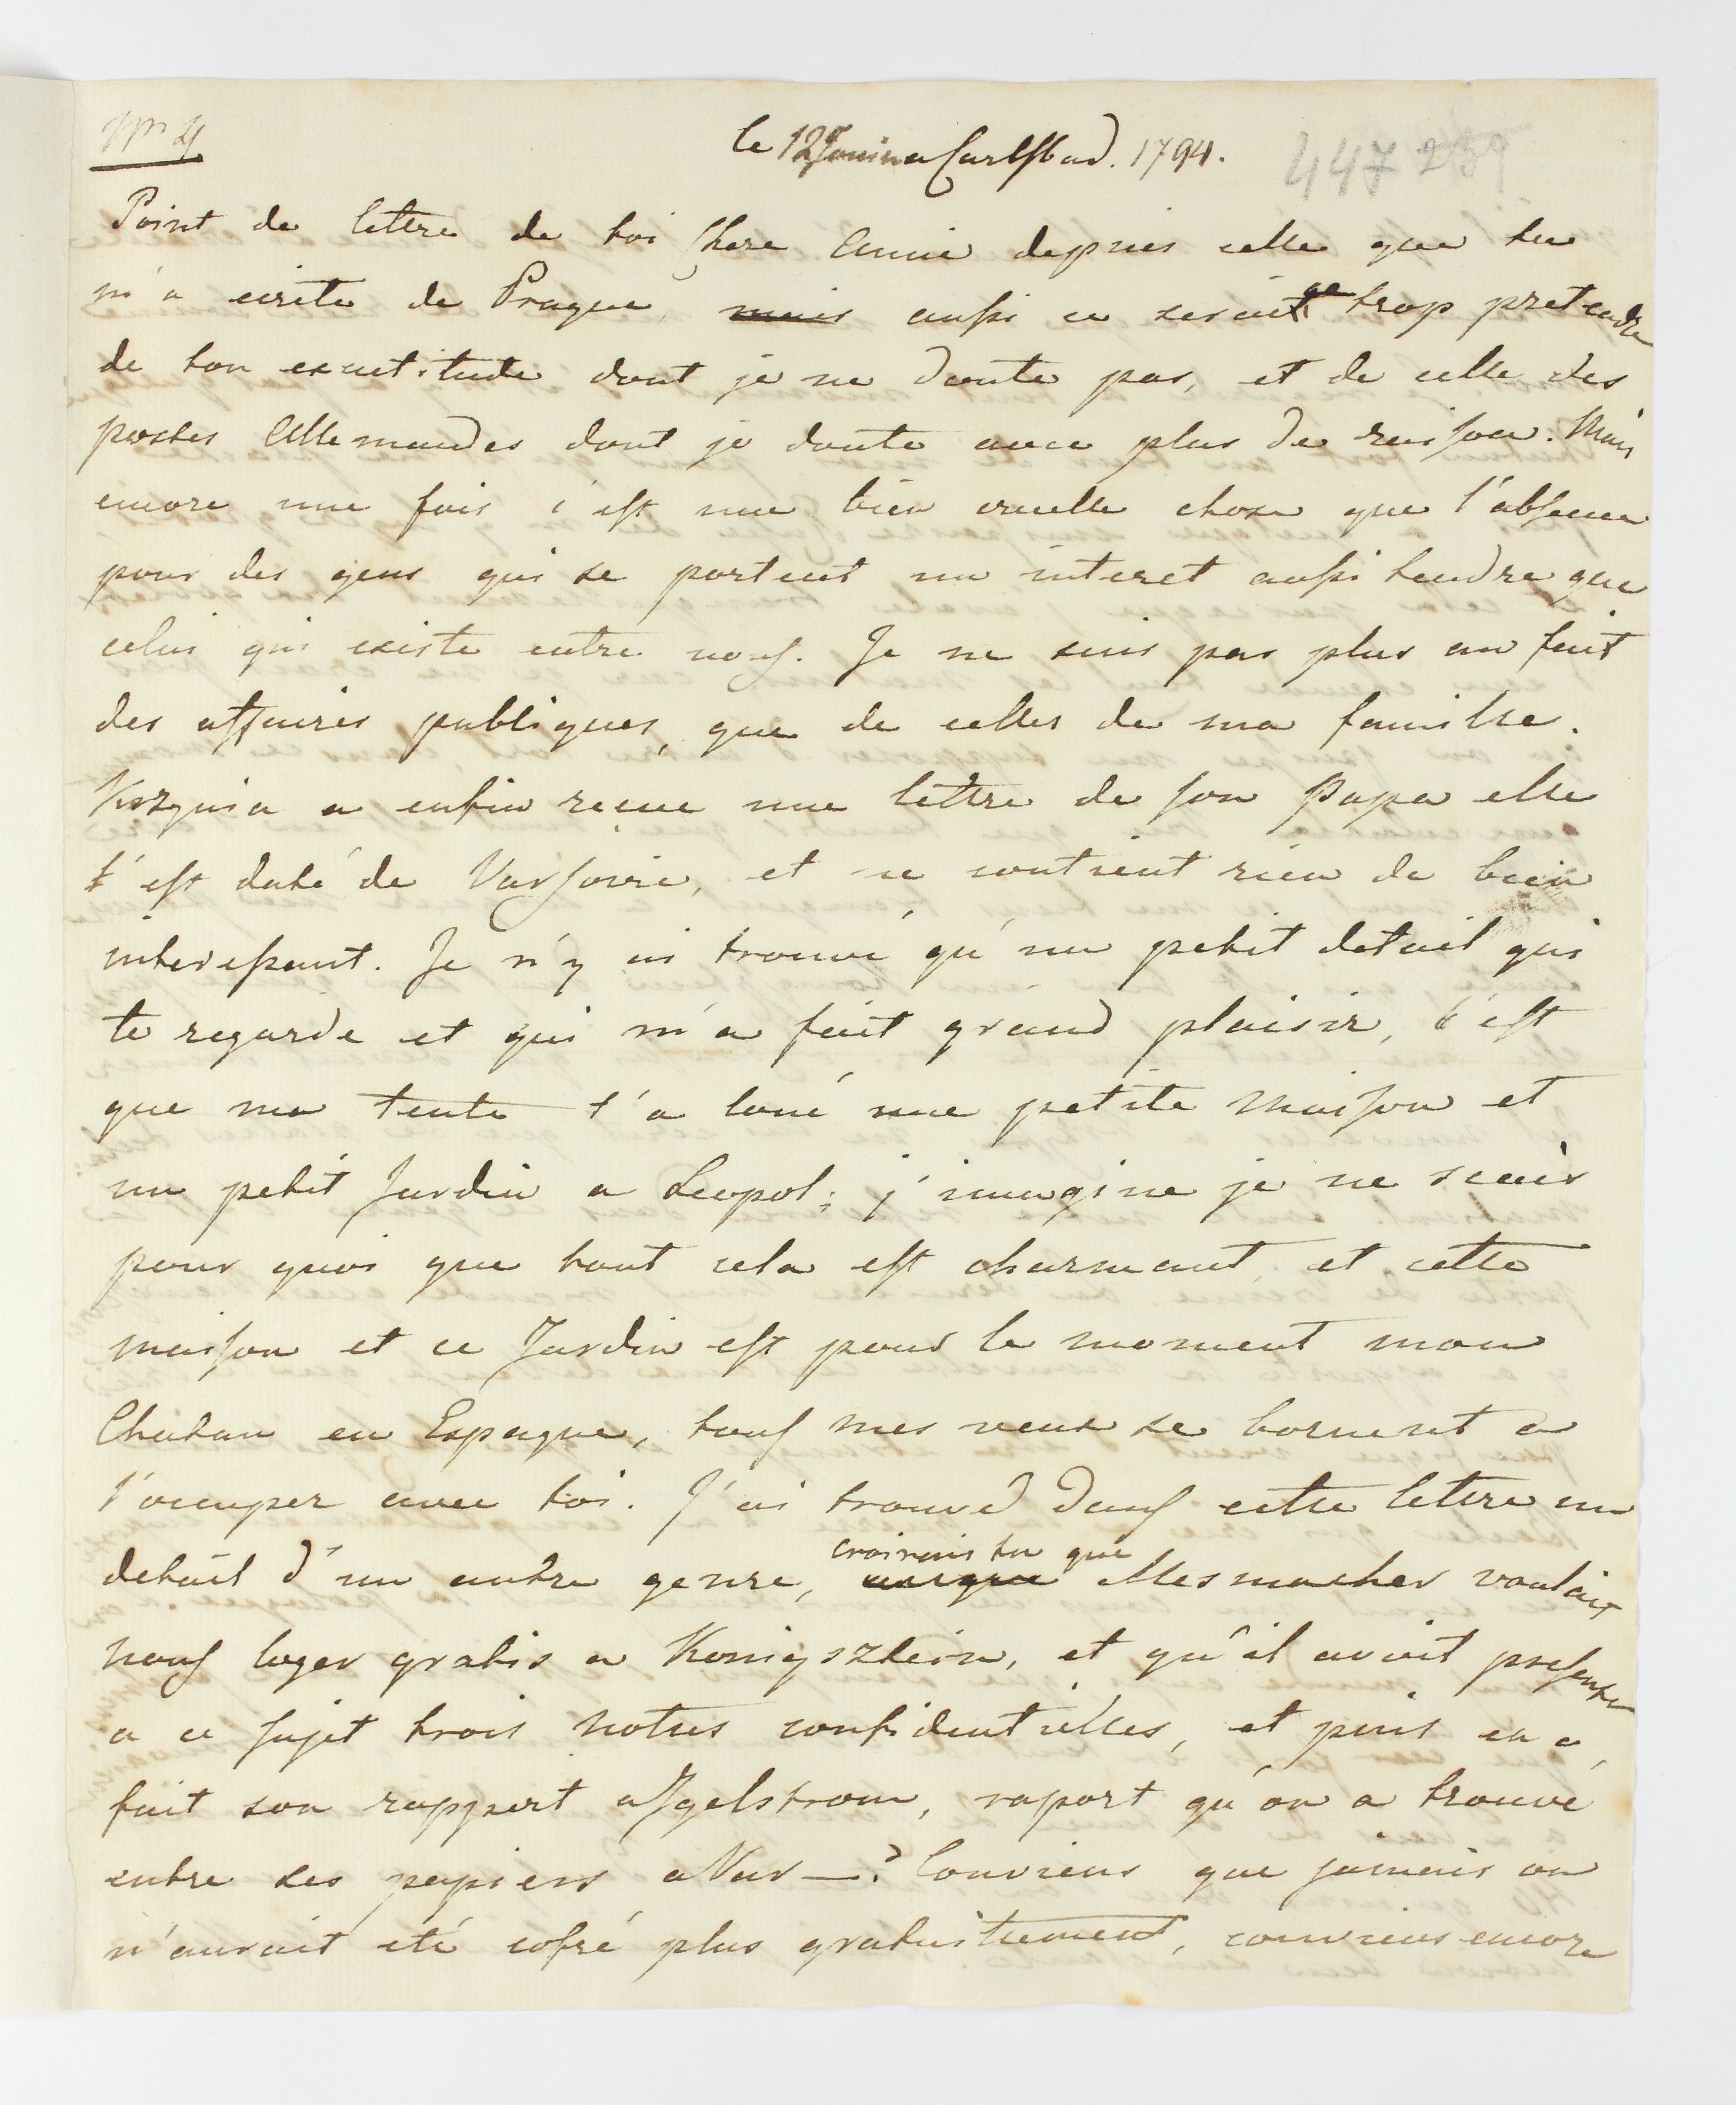 N° 4
le 12 Jouin a Carlsbad. 1794.
447 259
Point de lettre de toi Chere Amie depuis celle que tu
m'a ecrite de Prague, mais aussi ce serait ge trop pretendre
de ton exactitude dont je ne doute pas, et de celle des
postes Allemandes dont je doute avec plus de raison. Mais
encore une fois c'est une bien cruelle chose que l'absence
pour des gens qui se portent un interet aussi tendre que
celui qui existe entre nous. Je ne suis pas plus au fait
des affaires publiques, que de celles de ma famille.
a enfin recue une lettre de son Papa elle
est daté de Varsovie, et ne contient rien de bien
interessant. Je n'y ai trouvé qu'un petit detail qui
te regarde et qui m'a fait grand plaisir, c'est
que ma tente t'a loué une petite Maison et
un petit Jardin a Leopol; j'imagine je ne scais
pour quoi que tout cela est charmant, et cette
maison et ce Jardin est pour le moment mon
Chatau en Espagne, tous mes veux se bornent a
l'occuper avec toi. J'ai trouvé dans cette lettre un
croirais tu que
detail d'un autre genre, Mesmacher voulait
nous loger gratis a Konigsztein, et qu'il avoit presenté
a ce sujet trois notes confidentielles, et puis en a
fait son rapport a Igelstrom, raport qu'on a trouvé
entre ses papiers a Var—? Conviens que jamais on
n'aurait eté cofré plus gratuitement, conviens encore